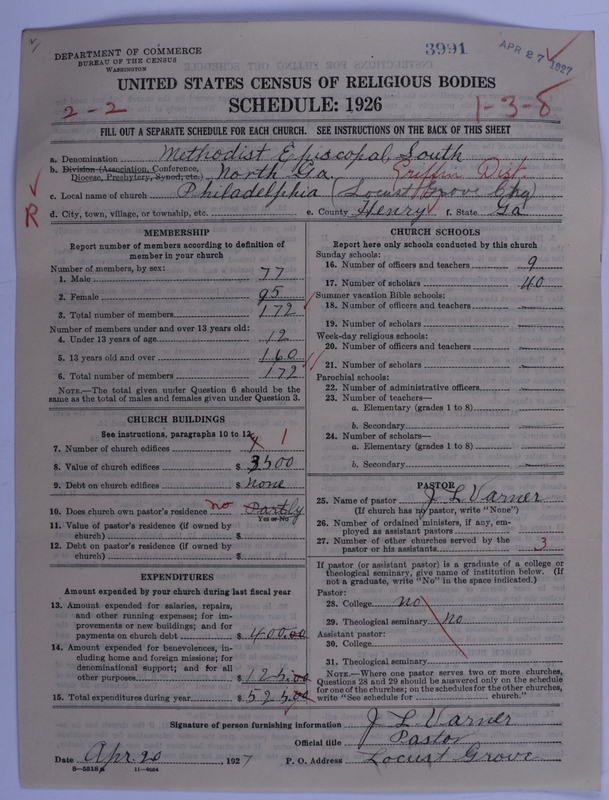 DEPARTMENT OF COMMERCE
BUREAU OF THE CENSUS
WASHINGTON
3991
APR 27 1927
UNITED STATES CENSUS OF RELIGIOUS BODIES
2-2
SCHEDULE: 1926
1-3-8
FILL OUT A SEPARATE SCHEDULE FOR EACH CHURCH. SEE INSTRUCTIONS ON THE BACK OF THIS SHEET
a. Denomination Methodist Episcopal, South
b. Division (Association, Conference, Diocese, Presbytery, Synod, etc.) North Ga. Griffin Dist.
c. Local name of church Philadelphia (Locust Grove Chg)
R
d. City, town, village, or township, etc. e. County Henry f. State Ga
MEMBERSHIP
Report number of members according to definition of
member in your church
Number of members, by sex:
1. Male 77
2. Female 95
3. Total number of members 172
Number of members under and over 13 years old:
4. Under 13 years of age 12
5. 13 years old and over 160
6. Total number of members 172
NOTE.—The total given under Question 6 should be
same as the total of males and females given under Question 3.
CHURCH BUILDINGS
See instructions, paragraphs 10 to 12
7. Number of church edifices 1
8. Value of church edifices $ 3500
9. Debt on church edifices $ none
10. Does church own pastor's residence no Partly
Yes or No
11. Value of pastor's residence (if owned by
church) $
12. Debt on pastor's residence (if owned by
church) $
EXPENDITURES
Amount expended by your church during last fiscal year
13. Amount expended for salaries, repairs,
and other running expenses; for im-
provements or new buildings; and for
payments on church debt $ 400.00
14. Amount expended for benevolences, in-
cluding home and foreign missions; for
denominational support; and for all
other purposes $ 125.00
15. Total expenditures during year $ 525.00
CHURCH SCHOOLS
Report here only schools conducted by this church
Sunday schools:
16. Number of officers and teachers 9
17. Number of scholars 40
Summer vacation Bible schools:
18. Number of officers and teachers
19. Number of scholars
Week-day religious schools:
20. Number of officers and teachers
21. Number of scholars
Parochial schools:
22. Number of administrative officers
23. Number of teachers—
a. Elementary (grades 1 to 8)
b. Secondary
24. Number of scholars—
a. Elementary (grades 1 to 8)
b. Secondary
PASTOR
25. Name of pastor J L Varner
(If church has no pastor, write "None")
26. Number of ordained ministers, if any, em-
ployed as assistant pastors
27. Number of other churches served by the
pastor or his assistants 3
If pastor (or assistant pastor) is a graduate of a college or
theological seminary, give name of institution below. (If
not a graduate, write "No" in the space indicated.)
Pastor:
28. College no
29. Theological seminary no
Assistant pastor:
30. College
31. Theological seminary
NOTE.—Where one pastor serves two or more churches,
Questions 28 and 29 should be answered only on the schedule
for one of the churches; on the schedules for the other churches,
write "See schedule for church."
Signature of person furnishing information J L Varner
Official title Pastor
Date Apr. 20 1927 P. O. Address Locust Grove
8-5318a 11-4664